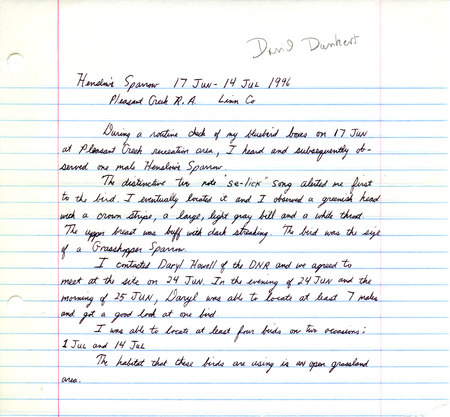 David Dunkert
Henslow's Sparrow 17 JUN - 14 JUL 1996
Pleasant Creek R.A. Linn Co
During a routine check of my bluebird boxes on 17 JUN
at Pleasant Creek recreation area, I heard and subsequently ob-
served one male Henslow's Sparrow.
The distinctive two note "se-lick" song alerted me first
to the bird. I eventually located it and I observed a greenish head
with a crown stripe, a large, light gray bill and a white throat.
The upper breast was buff with dark streaking. The bird was the size
of a Grasshopper Sparrow.
I contacted Daryl Howell of the DNR and we agreed to
meet at the site on 24 JUN. In the evening of 24 JUN and the
morning of 25 JUN, Daryl was able to locate at least 7 males
and get a good look at one bird.
I was able to locate at least four birds on two occasions;
1 JUL and 14 JUL
The habitat that these birds are using is an open grassland
area.